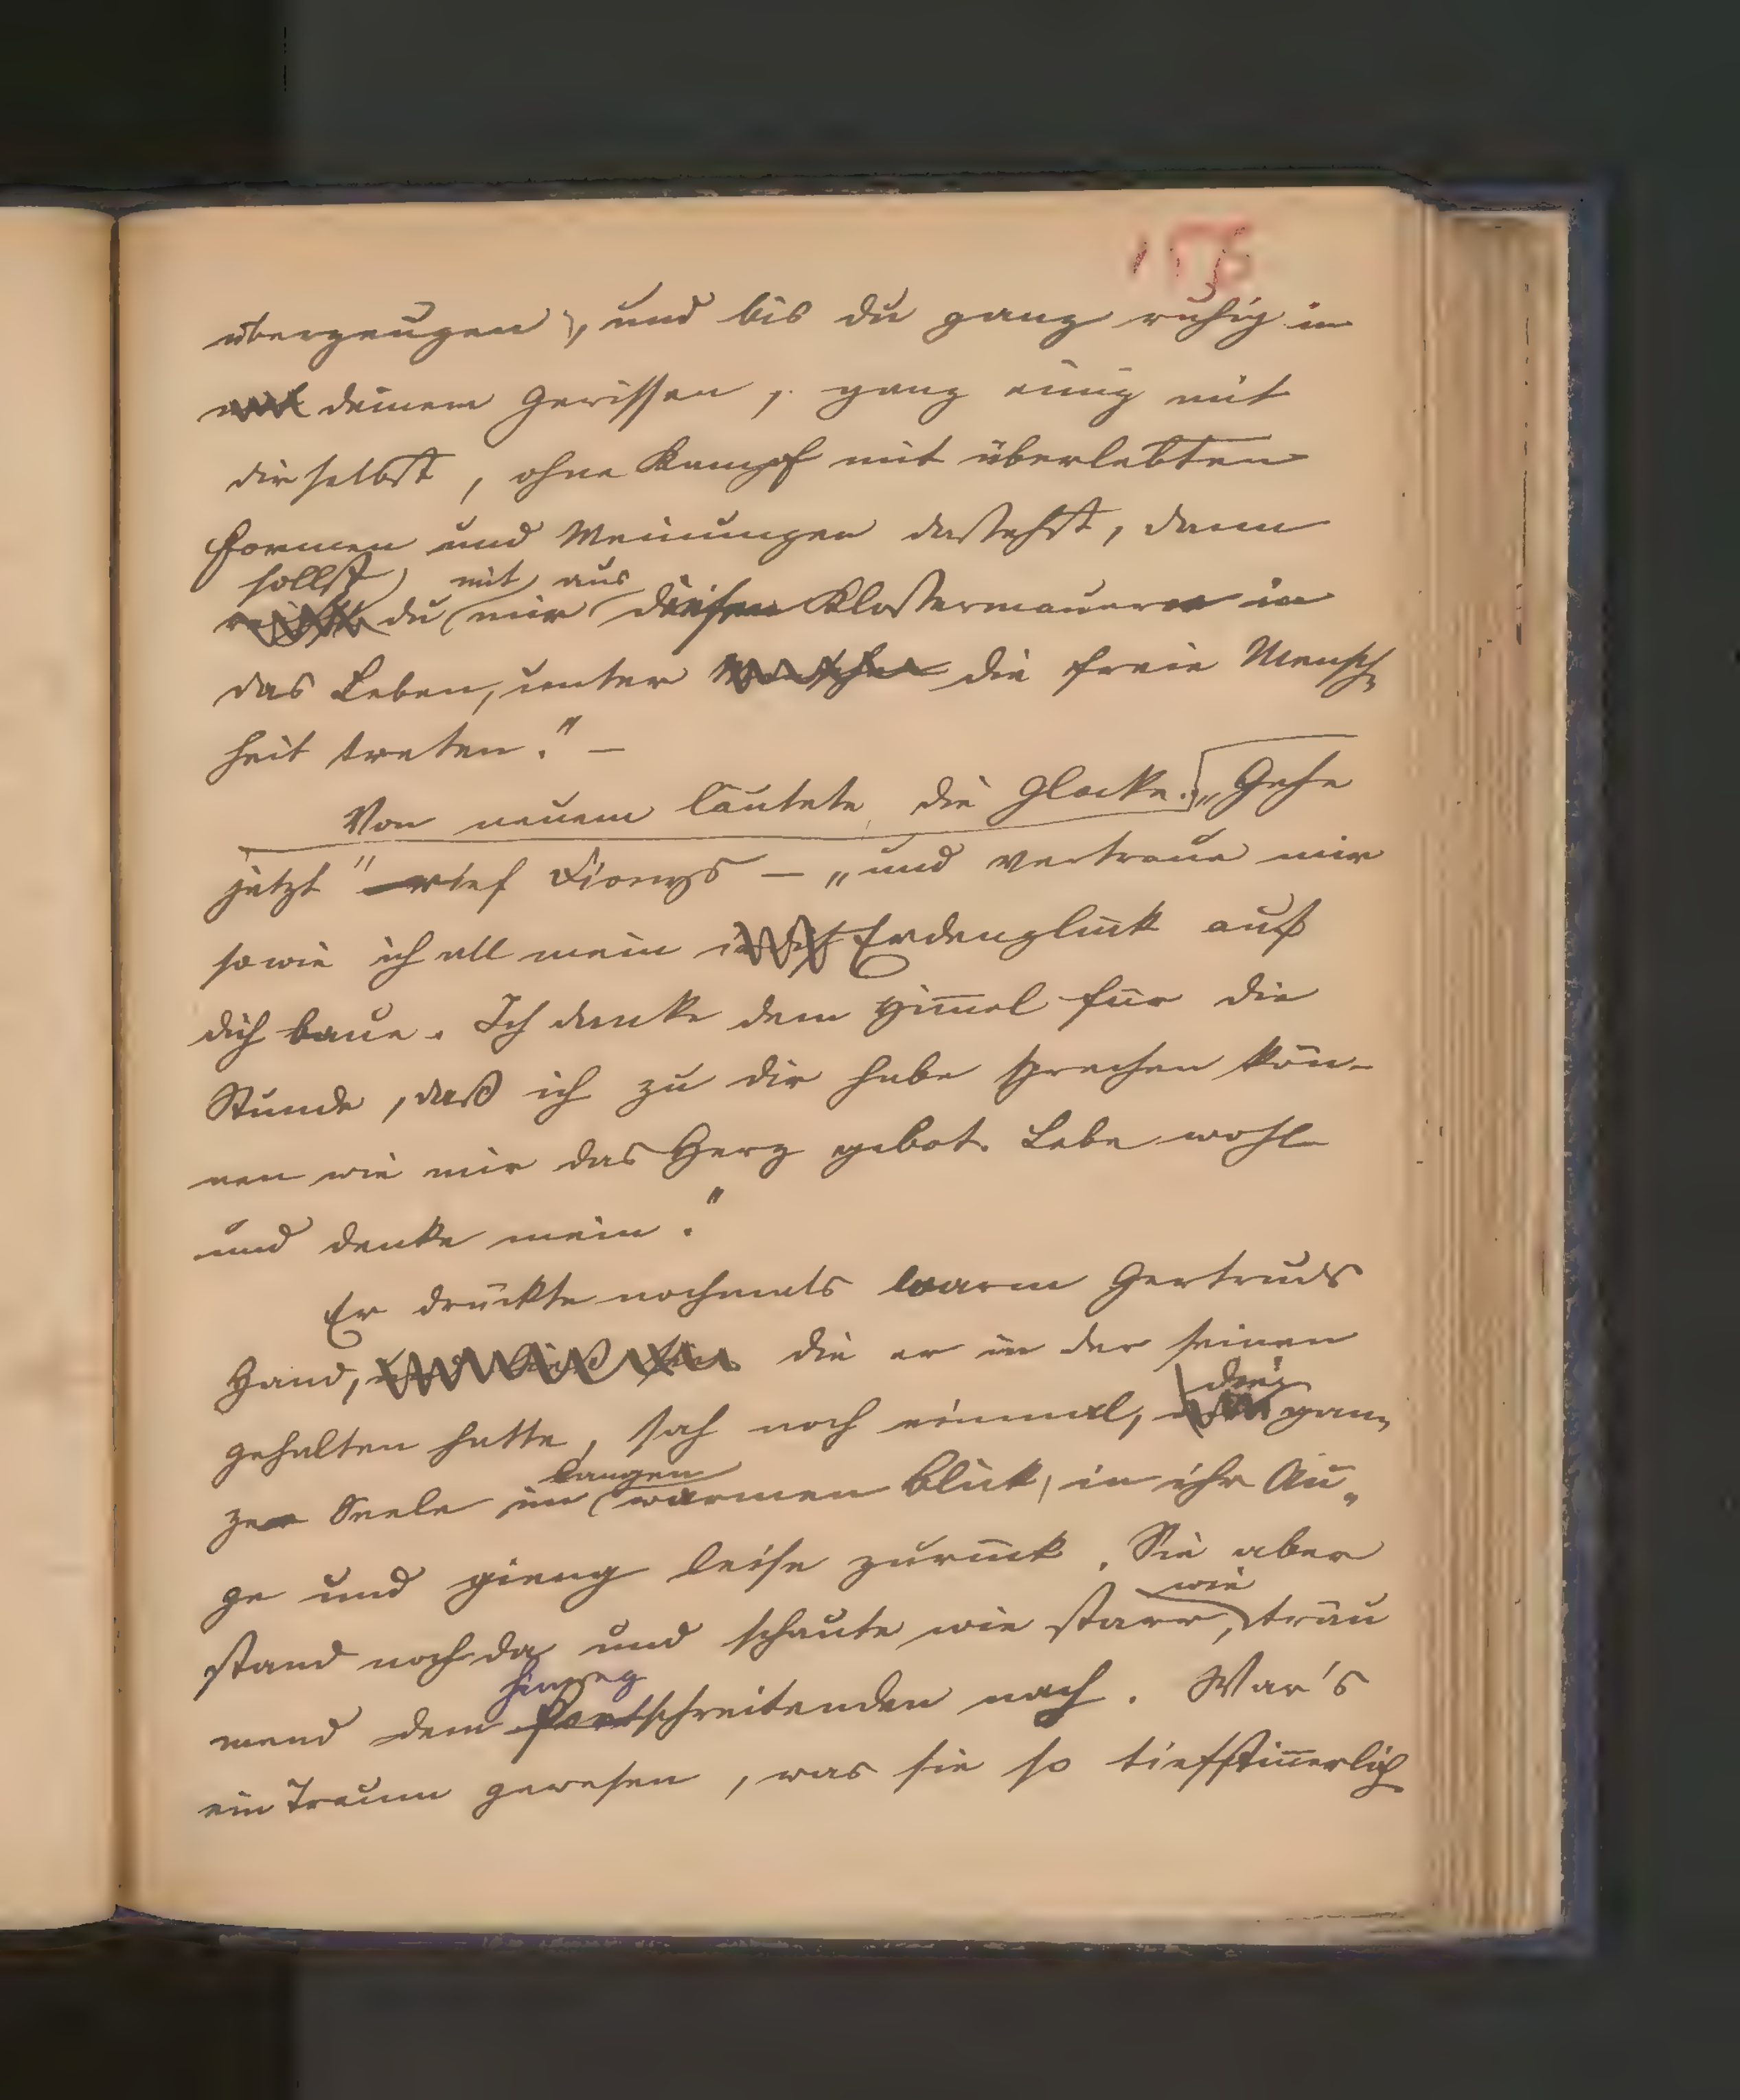 156
überzeugen, und bis du ganz ruhig in
deinem Gewissen, ganz einig mit
dir selbst, ohne Kampf mit überlebten
Formen und Meinungen dastehst, dann
sollst du mit mir aus diesen Klostermauern in
das Leben, unter die freie Mensch-
heit treten." –
Von neuem läutete die Glocke. „Gehe
jetzt" rief Dionys – „und vertraue mir
sowie ich all mein Erdenglück auf
dich baue. Ich danke dem Himmel für die
Stunde, daß ich zu dir habe sprechen kön-
nen wie mir das Herz gebot. Lebe wohl
und denke mein."
Er drückte nochmals warm Gertruds
Hand, die er in der seinen
gehalten hatte, sah noch einmal, die gan-
ze Seele im langen warmen Blick, in ihr Au-
ge und gieng leise zurück. Sie aber
stand noch da und schaute wie starr, wie träu
mend dem hinwegschreitenden nach. War's
ein Traum gewesen, was sie so tiefinnerlich